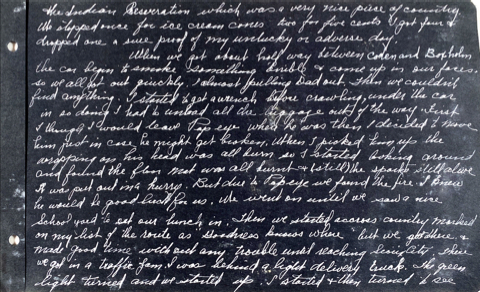 the Indian Reservation which was a very nice piece of country
We stopped once for ice cream cones two for five cents I got four &
dropped one a sure proof of my unlucky or adverse day
When we got about half way between Coren and Boxholm
the car began to smoke something terrible & come up in our faces.
so we all got out quickly, I almost pulling Dad out. Then we couldn't
find anything. I started to get a wrench before crawling under the car
in so doing I had to unload all the luggage out of the way. First
I thought I would leave Popeye where he was then I decided to move
him just in case he might get broken. When I picked him up the
wrapping on his head was all burn so I started looking around
and found the floor mat was all burnt & (still) the sparks still alive
It was put out in a hurry. But due to Popeye we found the fire. I knew
he would be good luck for us. We went on until we saw a nice
School yard to eat our lunch in. Then we started accross country marked
on my list of the route as Goodness knows where but we got there &
made good time with out any trouble until reaching Sioux City. There
we got in a traffic jam, I was behind a light delivery truck. The green
light turned and we started up I started & then turned to see